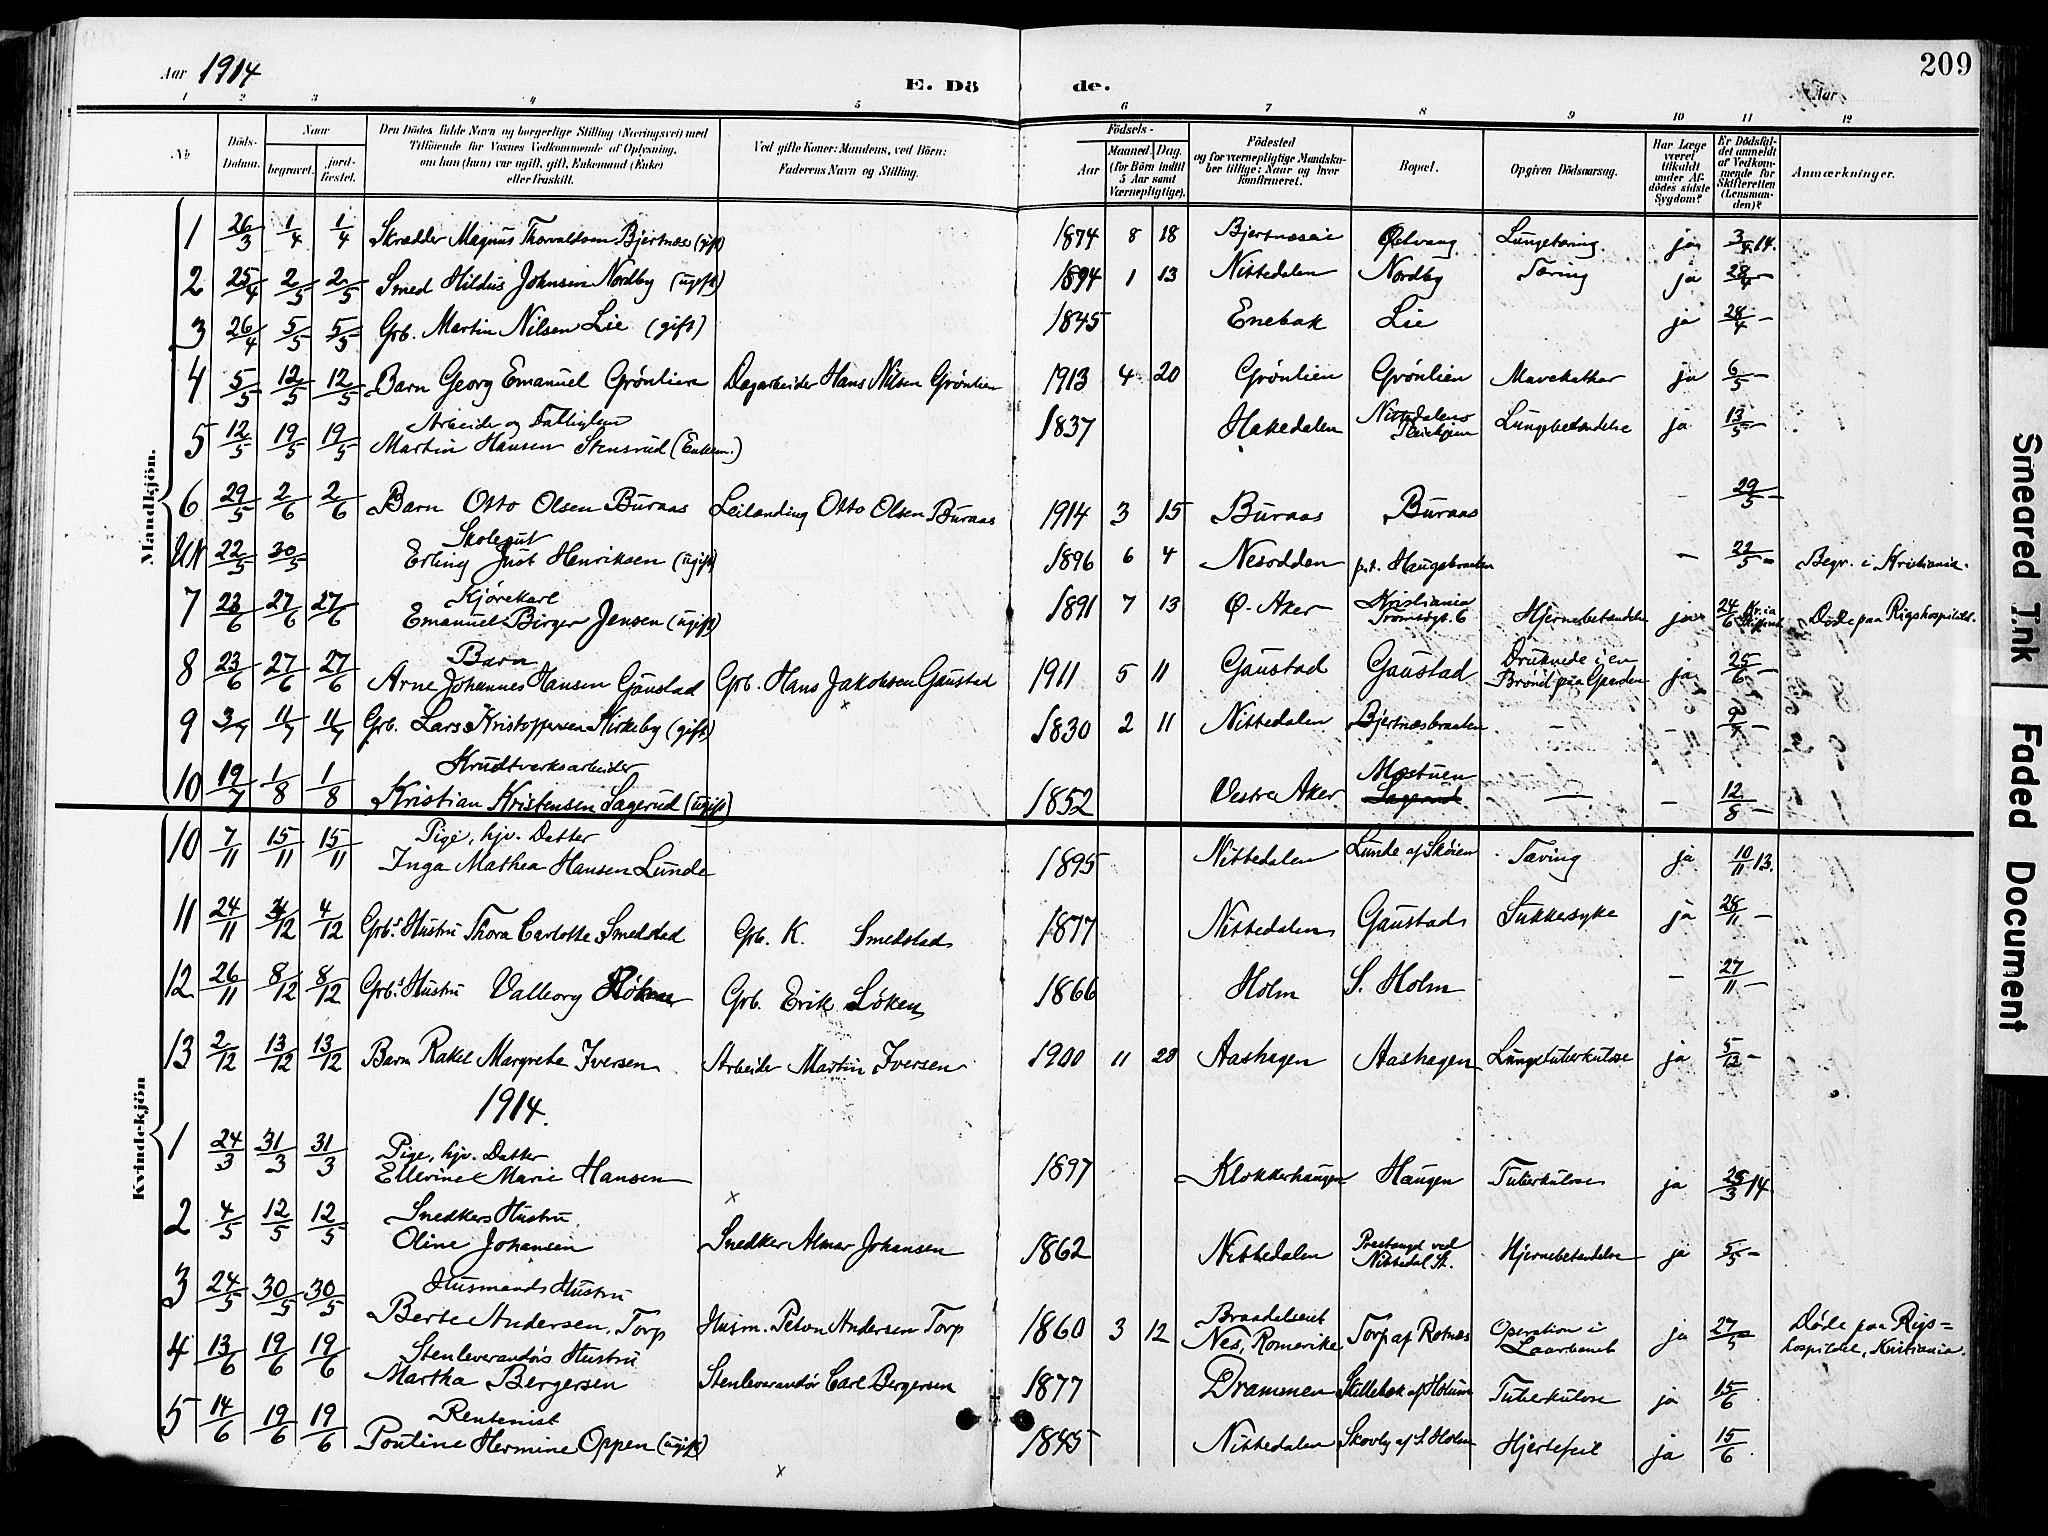 209
Aar 1914
E. Döde.
Aar
1 2 3 4 5 6 7 8 9 10 11 12
No
Döds-Datum.
Naar begravet. jord-fæstet.
Den Dödes fulde Navn og borgerlige Stilling (Næringsvei) med Tilföiende for Voxnes Vedkommende af Oplysning, om han (hun) var ugift, gift, Enkemand (Enke) eller fraskilt.
Ved gifte Koner: Mandens, ved Börn: Faderens Navn og Stilling.
Födsels-
Aar Maaned. Dag. (for Börn indtil 5 Aar samt Værnepligtige).
Födested og for værnepligtige Mandskaber tillige: Naar og hvor konfirmeret.
Bopæl.
Opgiven Dödsaarsag.
Har Læge været tilkaldt under Afdödes sidste Sygdom?
Er Dödsfaldet anmeldt af Vedkommende for Skifteretten (Lensmanden)?
Anmærkninger.
Mandkjön.
1 26/3 1/4 1/4 Skrædder Magnus Thorvaldsen Bjertnæs (gift) 1874 8 18 Bjertnæseie Lungetæring ja 3/4 14.
2 25/4 2/5 2/5 Smed Hildus Johnsen Nordby (ugift) 1894 1 13 Nittedalen Nordby Tæring ja 28/4 -
3 26/4 5/5 5/5 Grb. Martin Nilsen Lie (gift) 1845 Enebak Lie ja 28/4 -
4 5/5 12/5 12/5 Barn Georg Emanuel Grönlien Dagarbeider Hans Nilsen Grönlien 1913 4 20 Grönlien Grönlien Mavekatar ja 6/5 -
5 12/5 19/5 19/5 Arbeider og Fattiglem
Martin Hansen Stensrud (Enkem.) 1837 Hakedalen Nittedalens Pleiehjem Lungebetændelse ja 13/5 -
6 29/5 2/6 2/6 Barn Otto Olsen Buraas Leilending Otto Olsen Buraas 1914 3 15 Buraas Buraas - 29/5 -
UN 22/5 30/5 Skolegut
Erling Just Henriksen (ugift) 1896 6 4 Nesodden p.t. Haugsbraaten - 22/5 - Begr. i Kristiania.
7 23/6 27/6 27/6 Kjörekarl
Emanuel Birger Jensen (ugift) 1891 7 13 Ö. Aker Kristiania Tromsögt. 6 Hjernebetændelse ja 24/6 Döde paa Rigshospitalet.
8 23/6 27/6 27/6 Barn
Arne Johannes Hansen Gaustad Grb. Hans Jakobsen Gaustad 1911 5 11 Gaustad Gaustad Druknede i en Brönd paa Gaarden ja 25/6 -
9 3/7 11/7 11/7 Grb. Lars Kristoffersen Kirkeby (gift) 1830 2 11 Nittedalen Bjertnæsbraaten - - 3/7 -
10 19/7 1/8 1/8 Krudtverksarbeider
Kristian Kristensen Sagerud (ugift) 1852 Vestre Aker Moetuen Sagerud - - 12/8 -
Kvindekjön
10 7/11 15/11 15/11 Pige, hjv. Datter
Inga Mathea Hansen Lunde 1895 Nittedalen Lunde af Sköien Tæring ja 10/11 13.
11 24/11 4/12 4/12 Grb.s Hustru Thora Carlotte Smedstad Grb. K. Smedstad 1877 Nittedalen Gaustad Sukkersyke ja 28/11 -
12 26/11 8/12 8/12 Grb.s Hustru Valborg Löken Grb. Erik Löken 1866 Holm S. Holm - 27/11 -
13 2/12 13/12 13/12 Barn Rakel Margrethe Iversen Arbeider Martin Iversen 1900 11 28 Aashagen Aashagen Lungetuberkulose ja 5/12 -
1914.
1 24/3 31/3 31/3 Pige, hjv. Datter
Ellevine Marie Hansen 1897 Klokkerhaugen Haugen Tuberkulose ja 25/3 14
2 4/5 12/5 12/5 Snedkers Hustru
Oline Johansen Snedker Almar Johansen 1862 Nittedalen Prestangt ved Nittedal St. Hjernebetændelse ja 5/5 -
3 24/5 30/5 30/5 Husmands Hustru
Berte Andersen, Torp Husm. Peder Andersen Torp 1860 3 12 Braadalseiet Nes, Romerike Torp af Rotnæs Operation i Laarbenet ja 27/5 - Döde paa Rigshospitalet, Kristiania.
4 13/6 19/6 19/6 Stenleverandörs Hustru
Martha Bergersen Stenleverandör Carl Bergersen 1877 Drammen Skillebæk af Holum Tuberkulose ja 15/6
5 14/6 19/6 19/6 Rentenist
Pouline Hermine Oppen (ugift) 1845 Nittedalen Skovly af S. Holm Hjertefeil ja 15/6
Smeared Ink
Faded Document